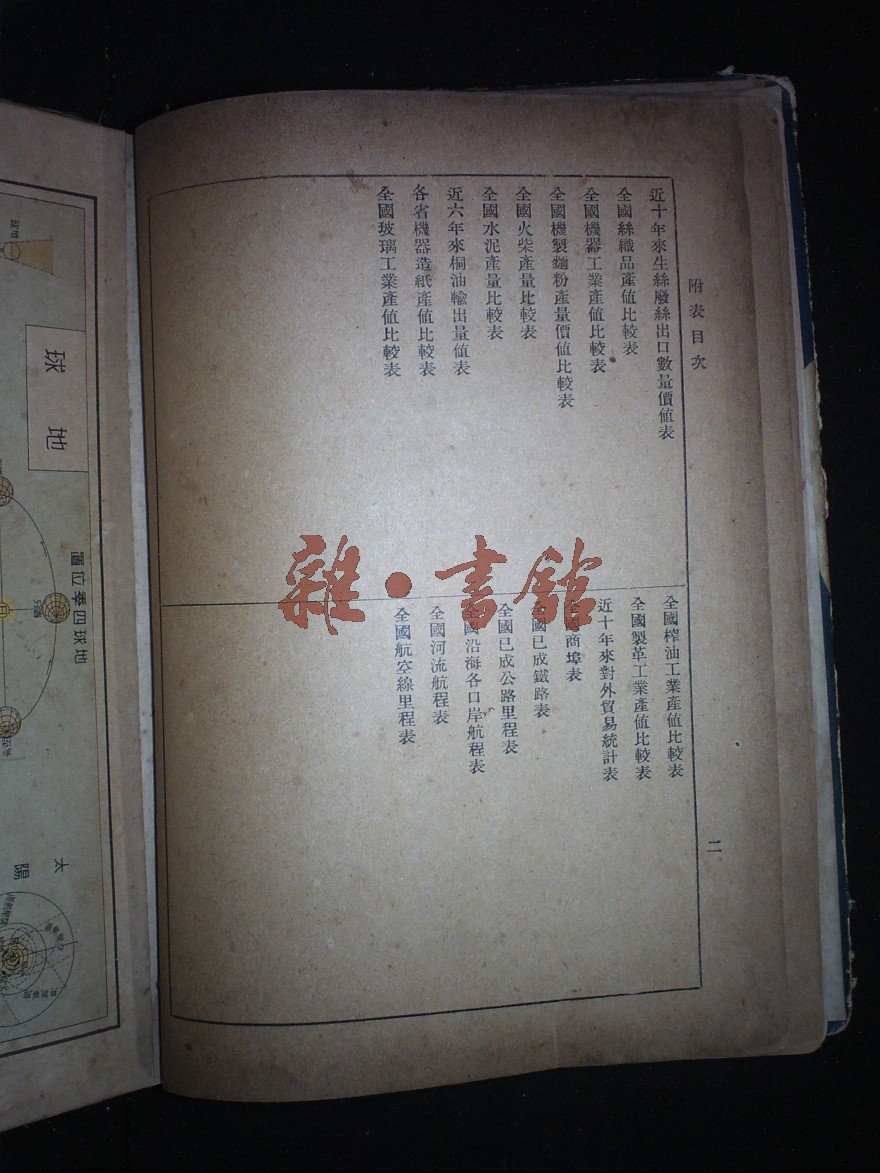 附表目次
近十年來生絲廢絲出口數量價値表
全國絲織品產値比較表
全國機器工業產値比較表
全國機製麵粉產量價値比較表
全國火柴產量比較表
全國水泥產量比較表
近六年來桐油輸出量値表
各省機器造紙產値比較表
全國玻璃工業產値比較表
全國榨油工業產値比較表
全國製革工業產値比較表
近十年來對外貿易統計表
全國商埠表
全國已成鐵路表
全國已成公路里程表
全國沿海各口岸航程表
全國河流航程表
全國航空線里程表
二
雜·書館
地球
地球四季位置
太陽